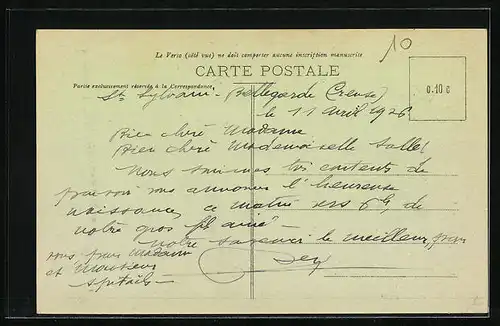 Le Verso (côté vue) ne doit comporter aucune inscription manuscrite
10
CARTE POSTALE
Partie exclusivement réservée à la Correspondance.
0.10 c
St Sylvain - Bellegarde Creuse
le 11 Avril 1926
Bien chère Madame
Bien chère Mademoiselle
Nous sommes contents de
pouvoir vous annoncer l'heureuse
naissance, ce matin vers 6h, de
notre gros fils
notre souvenir le meilleur, pour
vous, pour Madame
et Monsieur